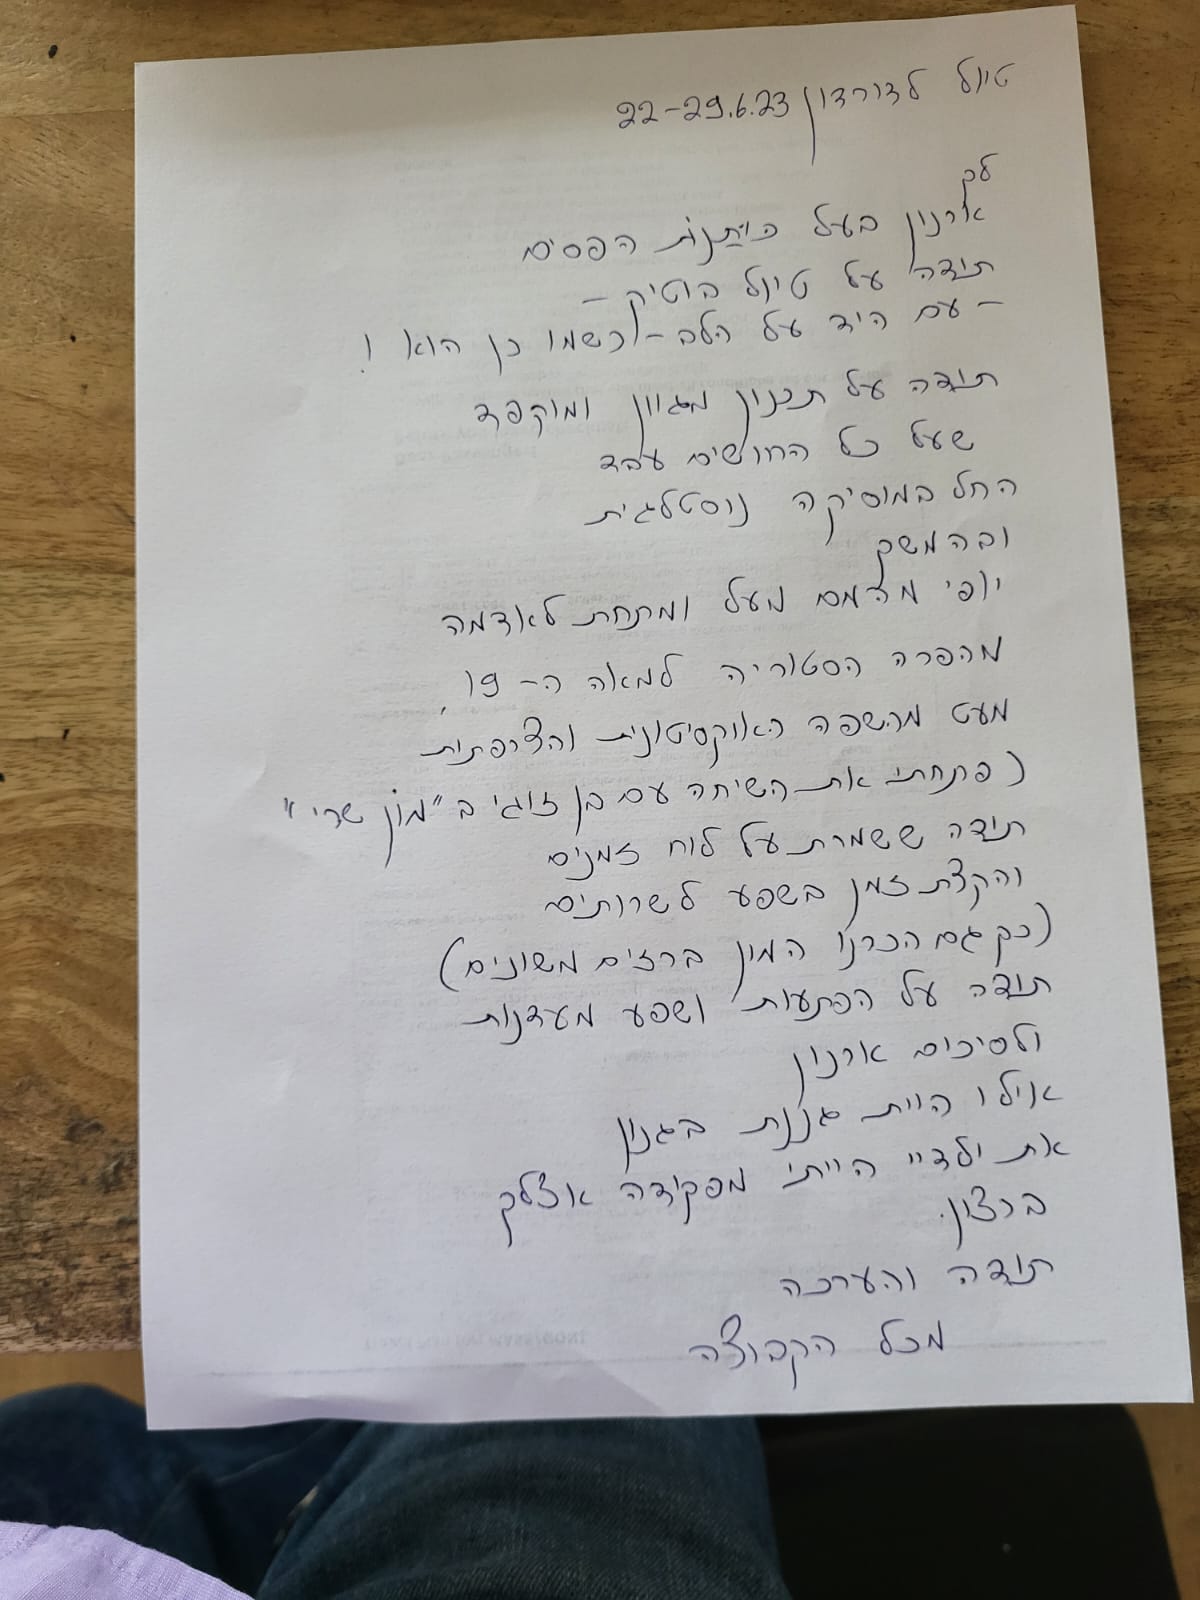 טיול לדורדון 22-29.6.23
לך
ארנון בעל כותנות הפסים
תודה על טיול בוטיק -
- עם היד על הלב - כשמו כן הוא !
תודה על תכנון מגוון ומוקפד
שעל כל החושים עבד
החל במוסיקה נוסטלגית
ובהמשך
יופי מדהים מעל ומתחת לאדמה
מהפרה הסטוריה למאה ה- 19,
מעט מהשפה האוקסיטונית והצרפתית
(פתחתי את השיחה עם בן זוגי ב "מון שרי"
תודה ששמרת על לוח זמנים
והקצת זמן בשפע לשרותים
(כך גם הכרנו המון ברזים משונים)
תודה על הפתעות ושפע מעדנות
ולסיכום ארנון
אילו היית גננת בגנון
את ילדיי הייתי מפקידה אצלך
ברצון.
תודה והערכה
מכל הקבוצה